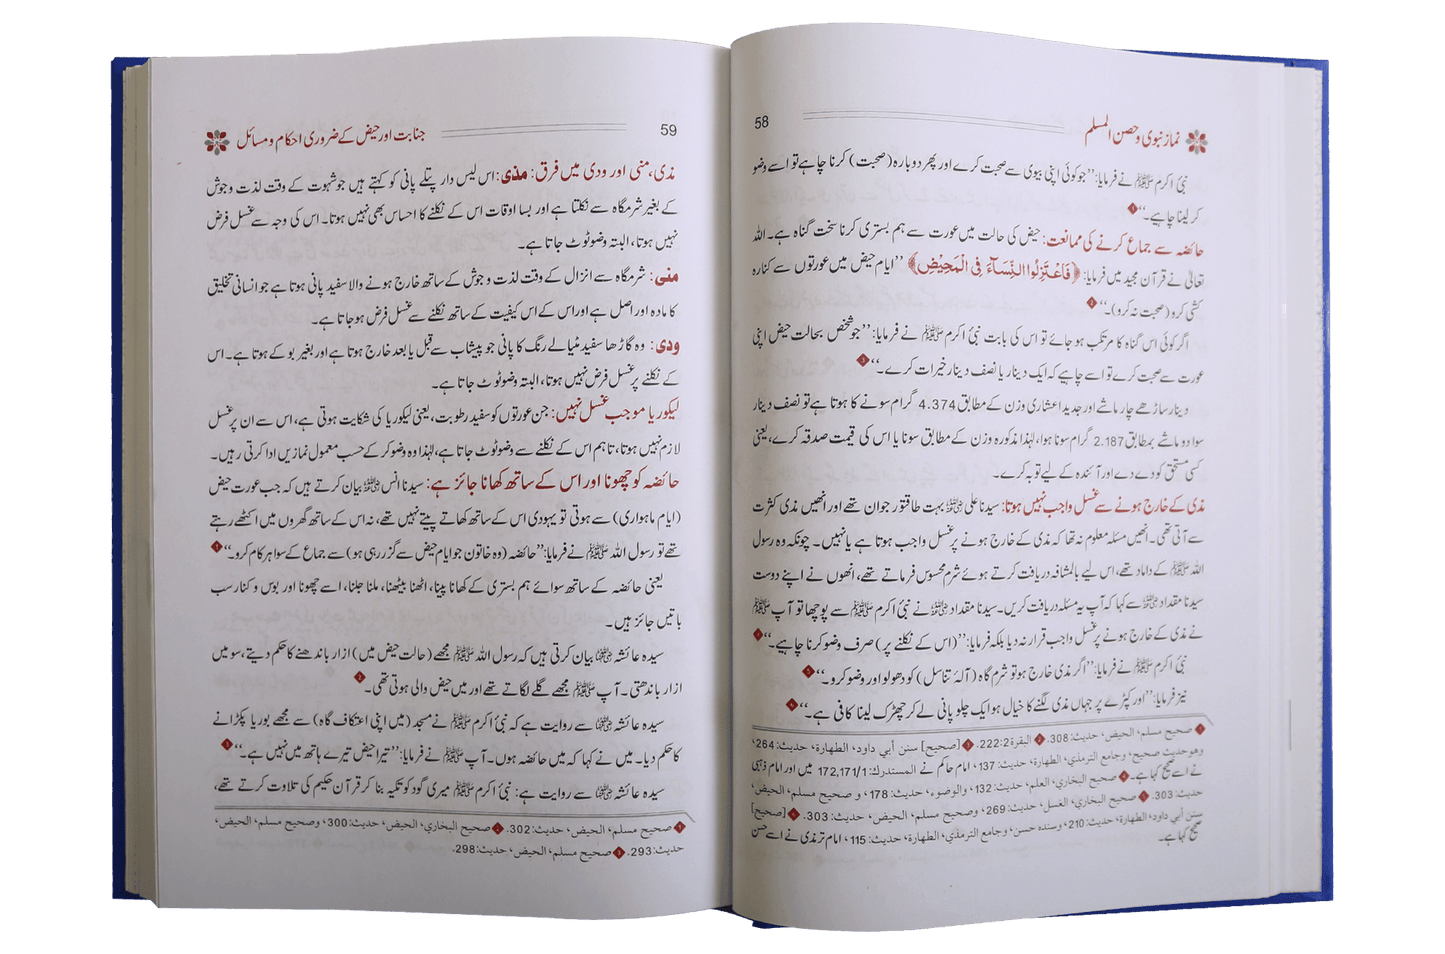 58
نماز نبوی و حصن المسلم
نبی اکرم ﷺ نے فرمایا: ’’جو کوئی اپنی بیوی سے صحبت کرے اور پھر دوبارہ (صحبت) کرنا چاہے تو اسے وضو
کر لینا چاہیے۔‘‘
حائضہ سے جماع کرنے کی ممانعت: حیض کی حالت میں عورت سے ہم بستری کرنا سخت گناہ ہے۔ اللہ
تعالیٰ نے قرآن مجید میں فرمایا: ﴿فَاعْتَزِلُوا النِّسَآءَ فِی الْمَحِیْضِ﴾ ’’ایام حیض میں عورتوں سے کنارہ
کشی کرو (صحبت نہ کرو)۔‘‘
اگر کوئی اس گناہ کا مرتکب ہو جائے تو اس کی بابت نبی اکرم ﷺ نے فرمایا: ’’جو شخص بحالت حیض اپنی
عورت سے صحبت کرے تو اسے چاہیے کہ ایک دینار یا نصف دینار خیرات کرے۔‘‘
دینار ساڑھے چار ماشے اور جدید اعشاری وزن کے مطابق 4.374 گرام سونے کا ہوتا ہے تو نصف دینار
سوا دو ماشے بمطابق 2.187 گرام سونا ہوا، لہٰذا مذکورہ وزن کے مطابق سونا یا اس کی قیمت صدقہ کرے، یعنی
کسی مستحق کو دے دے اور آئندہ کے لیے توبہ کرے۔
مذی کے خارج ہونے سے غسل واجب نہیں ہوتا: سیدنا علی رضی اللہ عنہ بہت طاقتور جوان تھے اور انھیں مذی کثرت
سے آتی تھی۔ انھیں مسئلہ معلوم نہ تھا کہ مذی کے خارج ہونے پر غسل واجب ہوتا ہے یا نہیں۔ چونکہ وہ رسول
اللہ ﷺ کے داماد تھے، اس لیے بالمشافہ دریافت کرتے ہوئے شرم محسوس فرماتے تھے، انھوں نے اپنے دوست
سیدنا مقداد رضی اللہ عنہ سے کہا کہ آپ یہ مسئلہ دریافت کریں۔ سیدنا مقداد رضی اللہ عنہ نے نبی اکرم ﷺ سے پوچھا تو آپ ﷺ
نے مذی کے خارج ہونے پر غسل واجب قرار نہ دیا بلکہ فرمایا: ’’(اس کے نکلنے پر) صرف وضو کرنا چاہیے۔‘‘
نبی اکرم ﷺ نے فرمایا: ’’اگر مذی خارج ہو تو شرم گاہ (آلۂ تناسل) کو دھو لو اور وضو کرو۔‘‘
نیز فرمایا: ’’اور کپڑے پر جہاں مذی لگنے کا خیال ہو ایک چلو پانی لے کر چھڑک لینا کافی ہے۔‘‘
صحیح مسلم، الحیض، حدیث: 308. البقرۃ 222:2. [صحیح] سنن أبي داود، الطھارۃ، حدیث: 264،
وھو حدیث صحیح، وجامع الترمذي، الطھارۃ، حدیث: 137، امام حاکم نے المستدرك: 172,171/1 میں اور امام ذہبی
نے اسے صحیح کہا ہے۔ صحیح البخاري، العلم، حدیث: 132، والوضوء، حدیث: 178، و صحیح مسلم، الحیض،
حدیث: 303. صحیح البخاري، الغسل، حدیث: 269، وصحیح مسلم، الحیض، حدیث: 303. [صحیح]
سنن أبي داود، الطھارۃ، حدیث: 210، وسندہ حسن، وجامع الترمذي، الطھارۃ، حدیث: 115، امام ترمذی نے اسے حسن
صحیح کہا ہے۔
59
جنابت اور حیض کے ضروری احکام و مسائل
مذی، منی اور ودی میں فرق: مذی: اس لیس دار پتلے پانی کو کہتے ہیں جو شہوت کے وقت لذت و جوش
کے بغیر شرمگاہ سے نکلتا ہے اور بسا اوقات اس کے نکلنے کا احساس بھی نہیں ہوتا۔ اس کی وجہ سے غسل فرض
نہیں ہوتا، البتہ وضو ٹوٹ جاتا ہے۔
منی: شرمگاہ سے انزال کے وقت لذت و جوش کے ساتھ خارج ہونے والا سفید پانی ہوتا ہے جو انسانی تخلیق
کا مادہ اور اصل ہے اور اس کے اس کیفیت کے ساتھ نکلنے سے غسل فرض ہو جاتا ہے۔
ودی: وہ گاڑھا سفید مٹیالے رنگ کا پانی جو پیشاب سے قبل یا بعد خارج ہوتا ہے اور بغیر بو کے ہوتا ہے۔ اس
کے نکلنے پر غسل فرض نہیں ہوتا، البتہ وضو ٹوٹ جاتا ہے۔
لیکوریا موجب غسل نہیں: جن عورتوں کو سفید رطوبت، یعنی لیکوریا کی شکایت ہوتی ہے، اس سے ان پر غسل
لازم نہیں ہوتا، تاہم اس کے نکلنے سے وضو ٹوٹ جاتا ہے، لہٰذا وہ وضو کر کے حسب معمول نمازیں ادا کرتی رہیں۔
حائضہ کو چھونا اور اس کے ساتھ کھانا جائز ہے: سیدنا انس رضی اللہ عنہ بیان کرتے ہیں کہ جب عورت حیض
(ایام ماہواری) سے ہوتی تو یہودی اس کے ساتھ کھاتے پیتے نہیں تھے، نہ اس کے ساتھ گھروں میں اکٹھے رہتے
تھے تو رسول اللہ ﷺ نے فرمایا: ’’حائضہ (وہ خاتون جو ایام حیض سے گزر رہی ہو) سے جماع کے سوا ہر کام کرو۔‘‘
یعنی حائضہ کے ساتھ سوائے ہم بستری کے کھانا پینا، اٹھنا بیٹھنا، ملنا جلنا، اسے چھونا اور بوس و کنار سب
باتیں جائز ہیں۔
سیدہ عائشہ رضی اللہ عنہا بیان کرتی ہیں کہ رسول اللہ ﷺ مجھے (حالت حیض میں) ازار باندھنے کا حکم دیتے، سو میں
ازار باندھتی۔ آپ ﷺ مجھے گلے لگاتے تھے اور میں حیض والی ہوتی تھی۔
سیدہ عائشہ رضی اللہ عنہا سے روایت ہے کہ نبی اکرم ﷺ نے مسجد (میں اپنی اعتکاف گاہ) سے مجھے بوریا پکڑانے
کا حکم دیا۔ میں نے کہا کہ میں حائضہ ہوں۔ آپ ﷺ نے فرمایا: ’’تیرا حیض تیرے ہاتھ میں نہیں ہے۔‘‘
سیدہ عائشہ رضی اللہ عنہا سے روایت ہے: نبی اکرم ﷺ میری گود کو تکیہ بنا کر قرآن حکیم کی تلاوت کرتے تھے،
صحیح مسلم، الحیض، حدیث: 302. صحیح البخاري، الحیض، حدیث: 300، وصحیح مسلم، الحیض،
حدیث: 293. صحیح مسلم، الحیض، حدیث: 298.